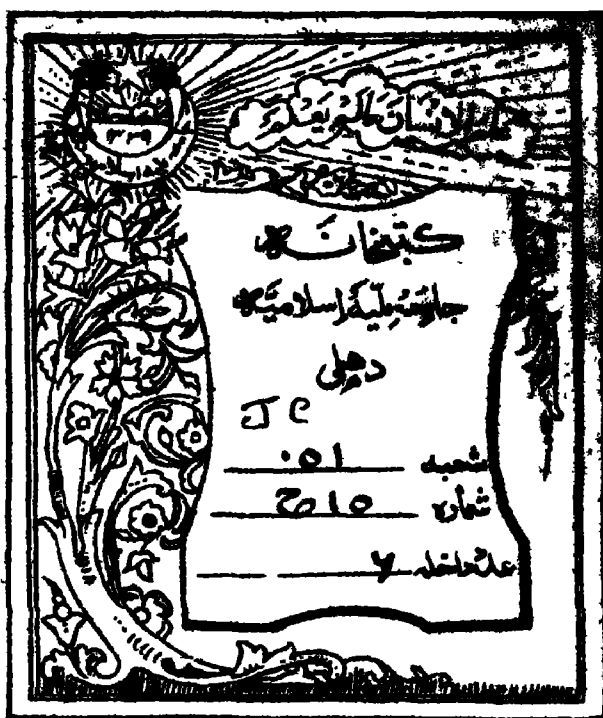 علم الانسان مالم يعلم
كتبخانه
جامعہ ملیہ اسلامیہ
دہلی
JC
شعبہ ۰۵۱
شمارہ
داخلہ